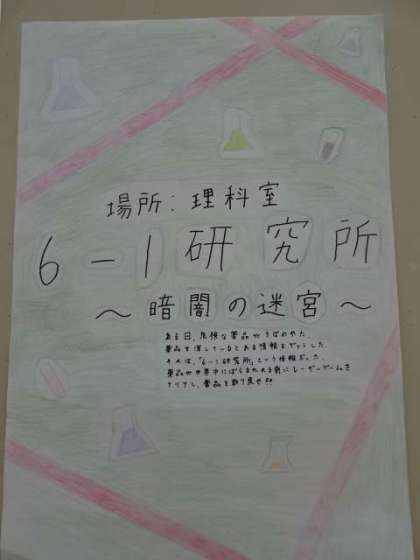 場所：理科室
6-1研究所
～暗闇の迷宮～
ある日、危険な薬品がうばわれた。
薬品を探しているとある情報をゲットした。
それは、「6-1研究所」という情報だった。
薬品が世界中にばらまかれる前にレーザーゲームを
クリアし、薬品を取り戻せ!!